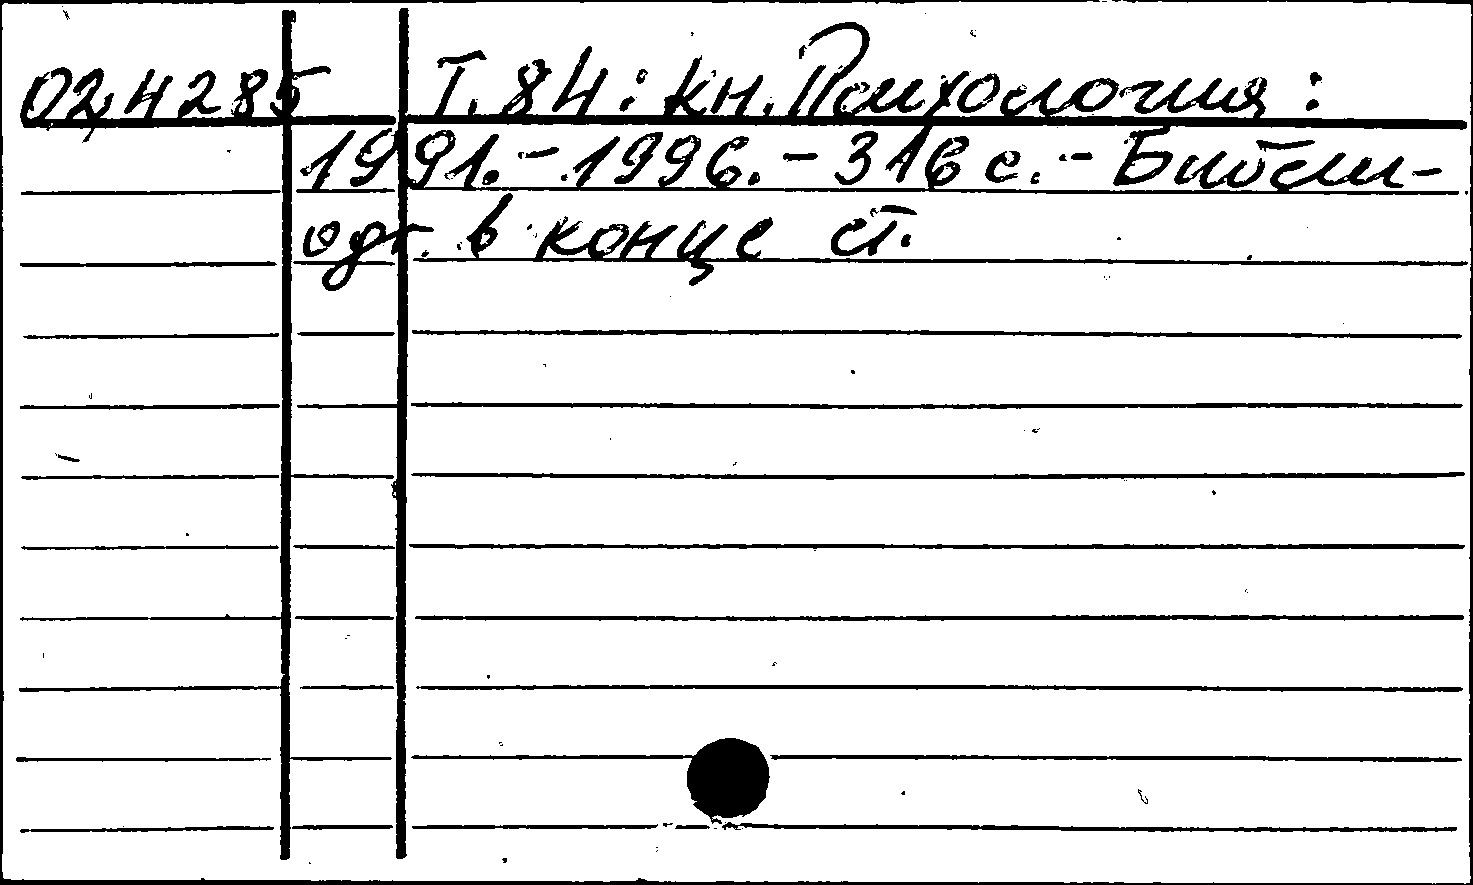 024285 Т. 84: кн. Психология:
1991. - 1996. - 316 с. - Библи-
огр. в конце ст.